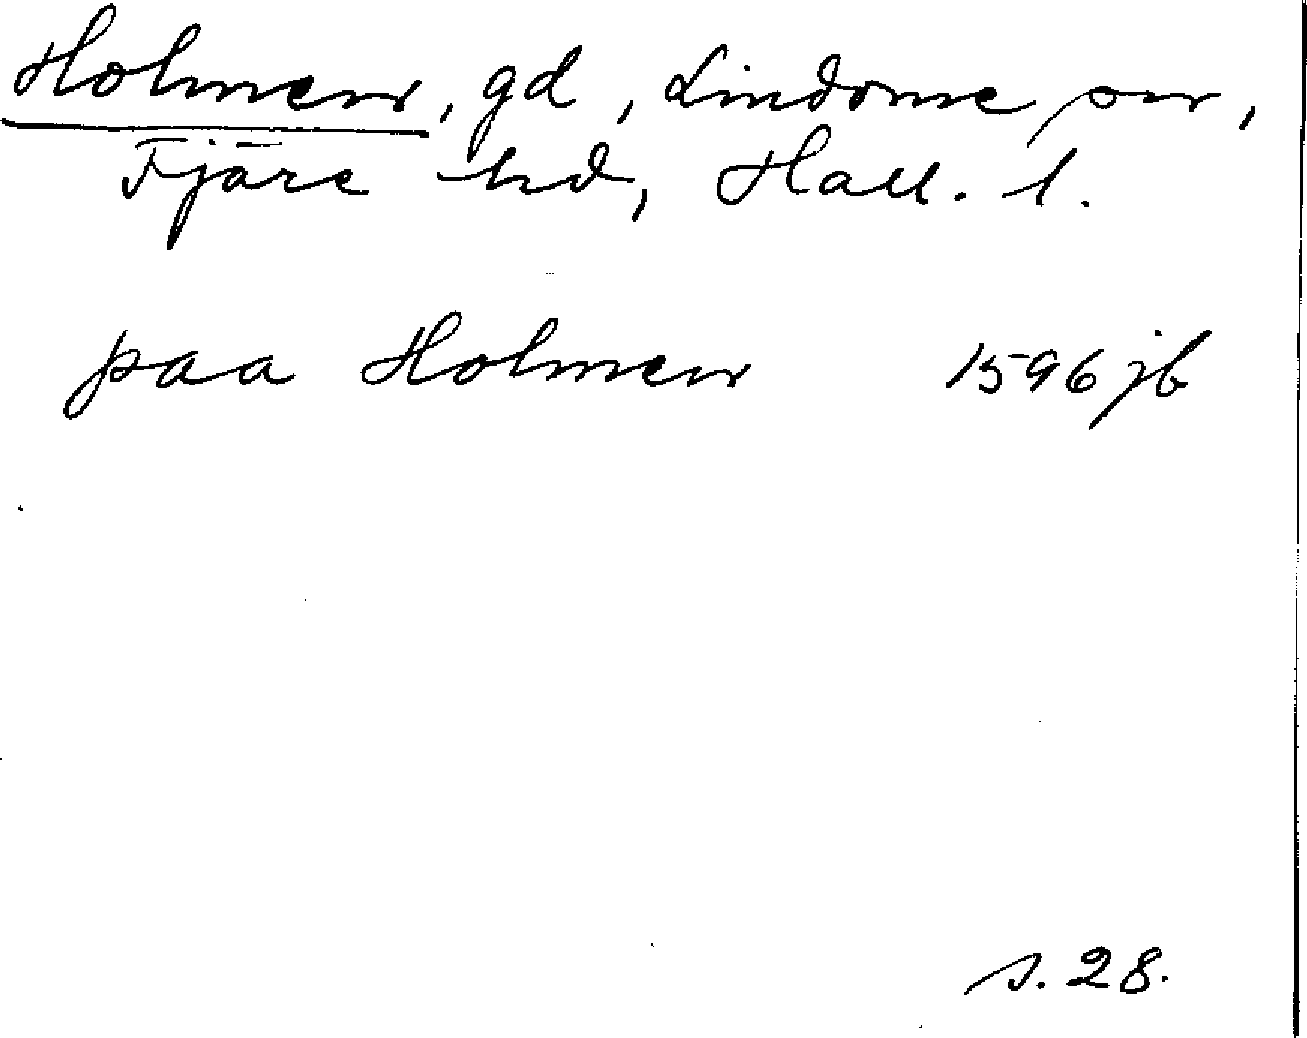 Holmen, gd, Lindome sn,
Fjäre hd, Hall. l.
paa Holmen 1596 jb
s. 28.